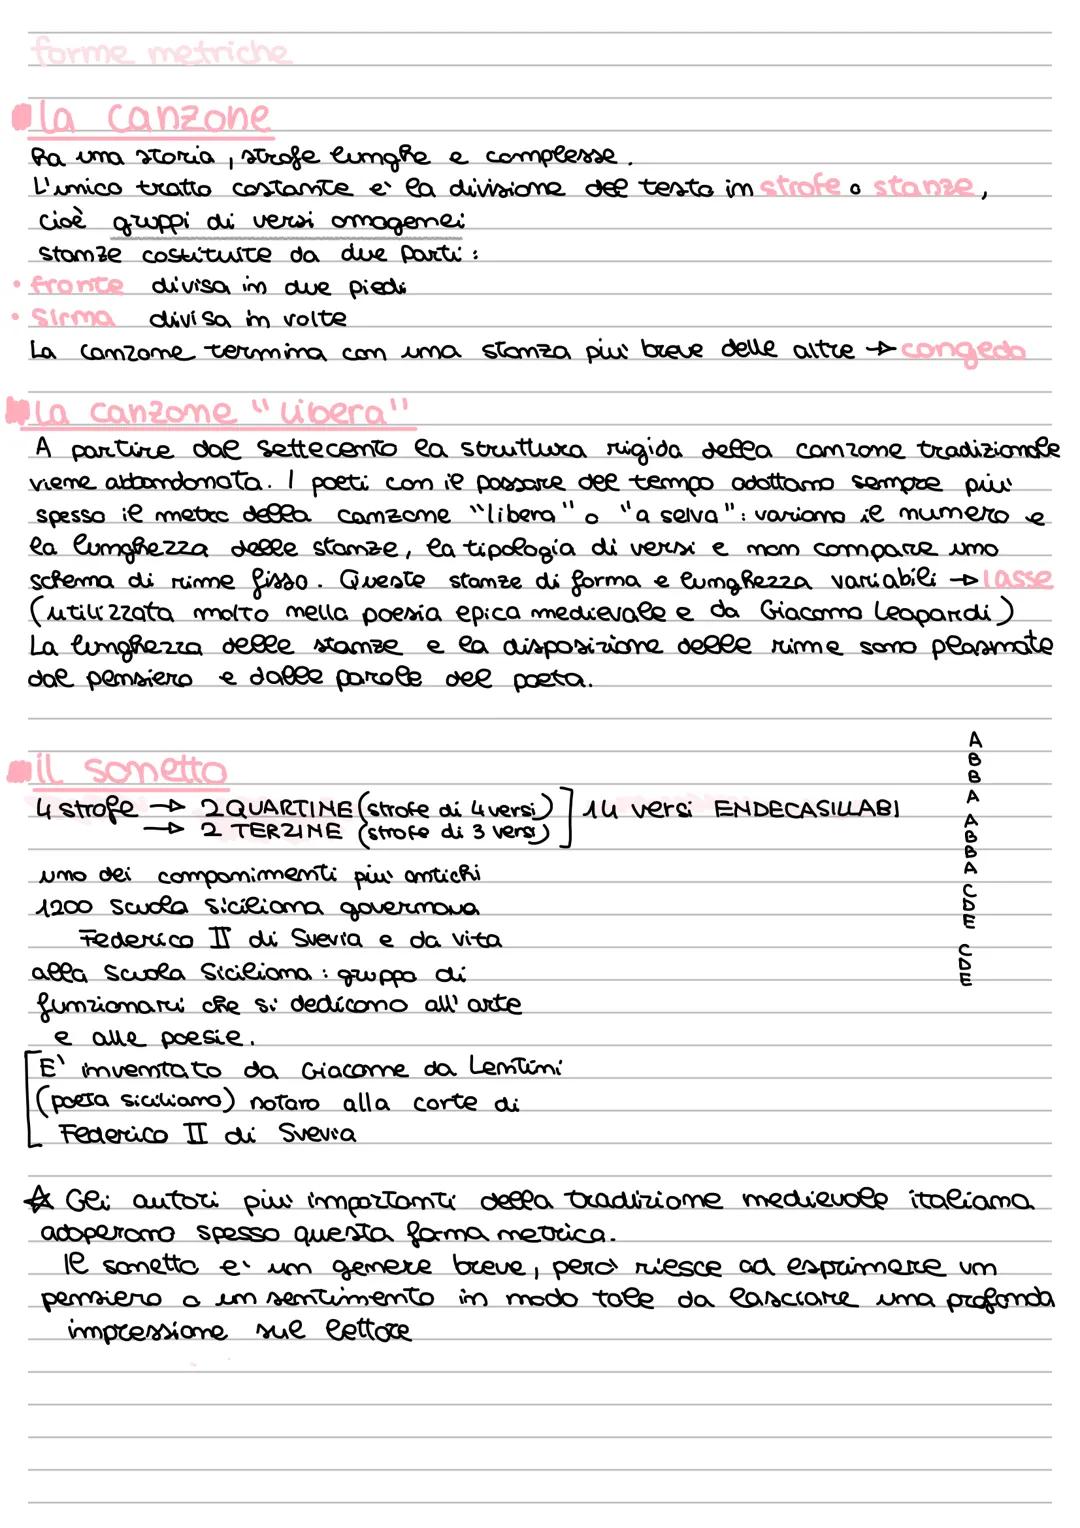 forme metriche
la canzone
ha una storia, strofe lunghe e complesse.
L'unico tratto costante e' la divisione del testo in strofe o stanze,
cioè gruppi di versi omogenei
stanze costituite da due parti:
• fronte divisa in due piedi
• sirma divisa in volte
La canzone termina con una stanza piu' breve delle altre → congedo
la canzone "libera"
A partire dal settecento la struttura rigida della canzone tradizionale
viene abbandonata. I poeti con il passare del tempo adottano sempre piu'
spesso il metro della canzone "libera" o "a selva": variano il numero e
la lunghezza delle stanze, la tipologia di versi e non compare uno
schema di rime fisso. Queste stanze di forma e lunghezza variabili → lasse
(utilizzata molto nella poesia epica medievale e da Giacomo Leopardi)
La lunghezza delle stanze e la disposizione delle rime sono plasmate
dal pensiero e dalle parole del poeta.
il sonetto
4 strofe → 2 QUARTINE (strofe di 4 versi) ] 14 versi ENDECASILLABI
→ 2 TERZINE (strofe di 3 versi)
uno dei componimenti piu' antichi
1200 scuola siciliana governava
Federico II di Svevia e da vita
alla scuola siciliana: gruppo di
funzionari che si dedicano all'arte
e alle poesie.
E' inventato da Giacome da Lentini
(poeta siciliano) notaro alla corte di
Federico II di Svevia
☆ Gli autori piu' importanti della tradizione medievale italiana
adoperano spesso questa forma metrica.
Il sonetto e' un genere breve, pero' riesce ad esprimere un
pensiero o un sentimento in modo tale da lasciare una profonda
impressione sul lettore
A
B
B
A
A
B
B
A
C
D
E
C
D
E